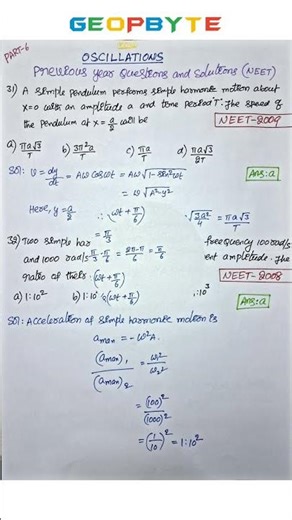 GEOPBYTE
PART-6
OSCILLATIONS
Previous year Questions and Solutions (NEET)
31) A simple pendulum performs simple harmonic motion about
x=0 with an amplitude a and time period T. The speed of
the pendulum at x = a/2 will be
NEET-2009
a) πa√3/T b) 3π²a/T c) πa/T d) πa√3/2T
Sol: v = dy/dt = Aω cos ωt = Aω √1-sin²ωt
Ans:a
= ω √A²-y²
Here, y = a/2 ∴ (ωt + π/6) √3a²/4 = πa√3/T
= π/3
32) Two simple har frequency 100 rad/s
and 1000 rad/s π/3 - π/6 = 2π-π/6 = π/6 ent amplitude. The
ratio of their (ωt + π/6)
NEET-2008
a) 1:10² b) 1:10 (ωt + π/6) 1:10³
Ans:a
Sol: Acceleration of simple harmonic motion is
a max = -ω²A
(a max)₁/(a max)₂ = ω₁²/ω₂²
= (100)²/(1000)²
= (1/10)² = 1:10²